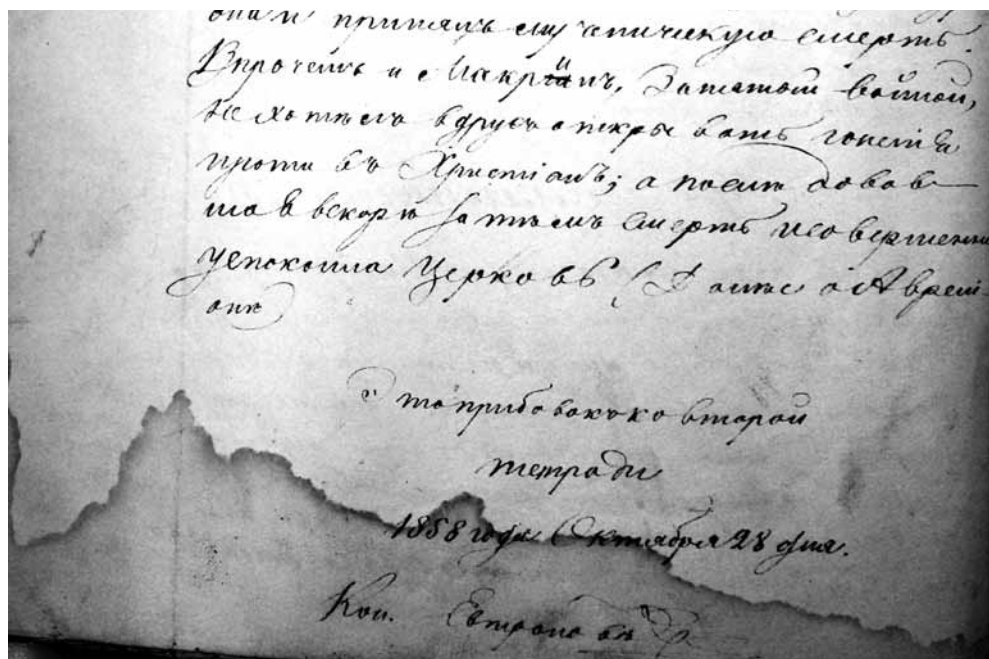 они приняли мученическую смерть.
Впрочемъ и Макринъ, занятый войной,
не хотѣлъ вдругъ открывать гоненія
противъ Христіанъ; а послѣдовав-
шая вскорѣ затѣмъ смерть его совершенно
успокоила Церковь (Далѣе о Аврелі-
анѣ)
Это прибавокъ ко второй
тетради
1858 года Октября 28 дня.
Коп.